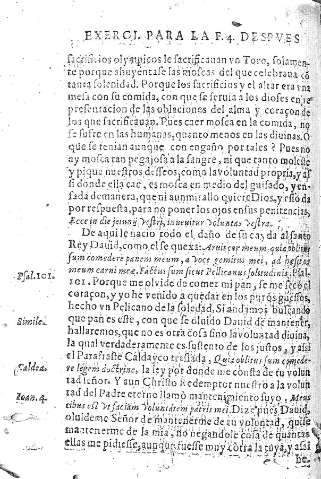 EXERCI. PARA LA F. 4. DESPVES
sacrificios olympicos le sacrificauan vn Toro, solamen-
te porque ahuyentase las moscas del que celebraua cõ
tanta solenidad. Porque los sacrificios y el altar era vna
mesa con su comida, con que se seruia a los dioses en re
presentacion de las oblaciones del alma y coraçon de
los que sacrificauan. Pues caer mosca en la comida, no
se sufre en las humanas, quanto menos en las diuinas. O
que se tenian aunque con engaño por tales? Pues no
ay mosca tan pegajosa a la sangre, ni que tanto moleste
y pique nuestros desseos, como la voluntad propria, y as
si donde ella cae, es mosca en medio del guisado, y en-
fada de manera, que ni aun mirallo quiere Dios, y esso da
por respuesta, para no poner los ojos en sus penitencias,
Ecce in die ieiunij vestri, inuenitur voluntas vestra.
De aqui le nacio todo el daño de su casa al santo
Rey Dauid, como el se quexa: Aruit cor meum, quia oblitus
sum comedere panem meum, a voce gemitus mei, adhesit os
meum carni meæ. Factus sum sicut Pellicanus solitudinis. Psal-
Psal. 101.
101. Porque me oluide de comer mi pan, se me seco el
coraçon, y yo he venido a quedar en los puros guessos,
hecho vn Pelicano de la soledad. Si andamos buscando
Simile.
que pan es este, con que se oluido Dauid de mantener,
hallaremos, que no es otra cosa sino la voluntad diuina,
la qual verdaderamente es sustento de los justos, y assi
el Parafraste Caldayco treslada, Quia oblitus sum comede-
Caldea.
re legem doctrinæ, la ley por donde me consta de tu volun
tad Señor. Y aun Christo Redemptor nuestro a la volun
tad del Padre eterno llamo mantenimiento suyo, Meus
Ioan. 4.
cibus est vt faciam voluntatem patris mei. Dize pues Dauid,
oluideme Señor de mantenerme de tu voluntad, quise
mantenerme de la mia, no negandole cosa de quantas
ellas me pidiesse, aunque fuesse muy cõtra la tuya, y assi
he.